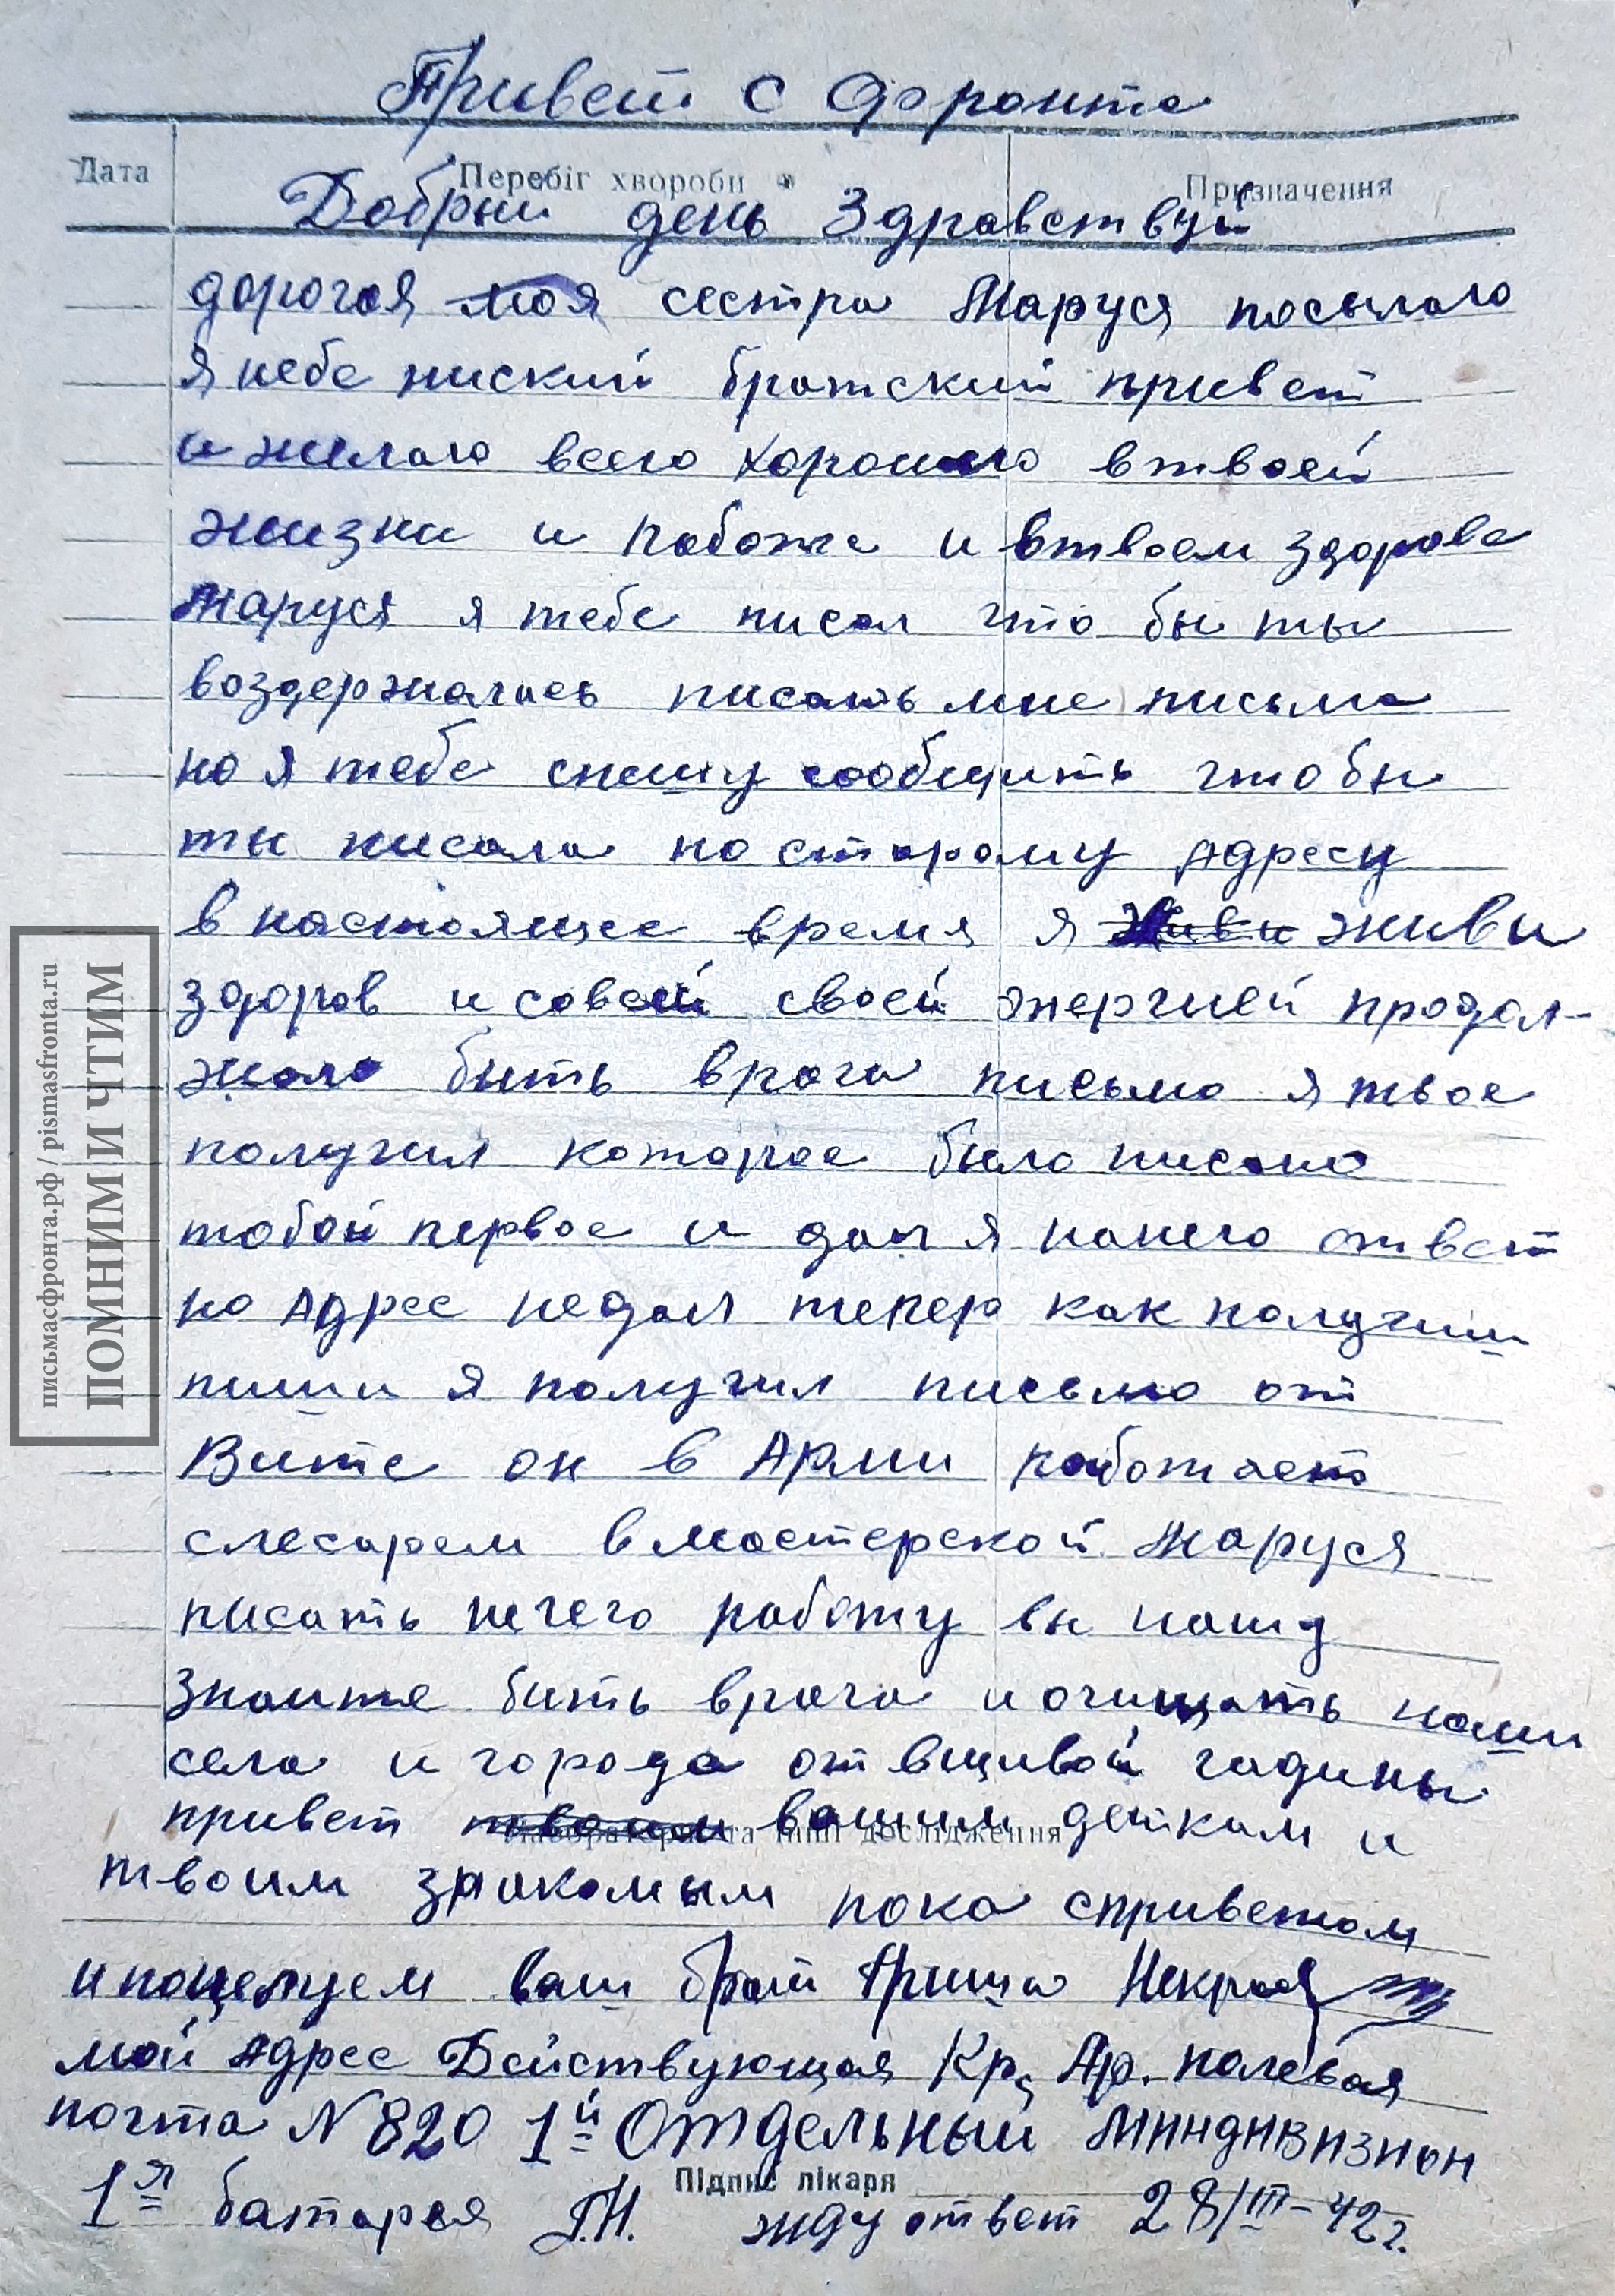 Привет с фронта
Дата
Перебіг хвороби
Призначення
Добрый день Здравствуй
дорогая моя сестра Маруся посылаю
я тебе ниский братский привет
и желаю всего хорошего втвоей
жизни и работе и втвоем здорове
Маруся я тебе писал что бы ты
воздержалась писать мне письма
но я тебе спешу сообщить чтобы
ты писала по старому Адресу
в настоящее время я живи живи
здоров и совсей своей энергией продол-
жаю бить врага письмо я твое
получил которое было писано
тобой первое и дал я нанего ответ
но Адрес недал тепер как получиш
пиши я получил письмо от
Вите он в Арми работает
слесарем вмастерской. Маруся
писать нечего работу вы нашу
знаите бить врага и очищать наши
села и города от вщивой гадины
привет твоим вашим деткам и
Лабораторні та інші дослідження
твоим знакомым пока сприветом
и поцелуем ваш брат Гриша Некрас
мой Адрес Действующая Кр. Ар. полевая
почта N 820 1й Отдельный Миндивизион
Підпис лікаря
1я батарея Г.Н. жду ответ 28/III-42г.
письмасфронта.рф / pismasfronta.ru
ПОМНИМ И ЧТИМ